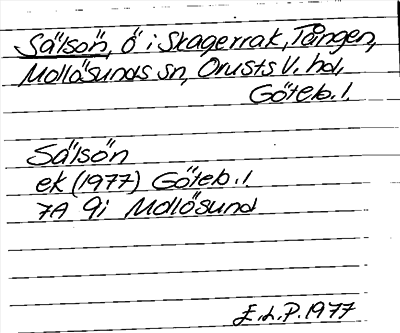 Sälsön, ö i Skagerrak, Tången,
Mollösunds sn, Orusts V. hd,
Göteb. l.
Sälsön
ek (1977) Göteb. l.
7A 9i Mollösund
E.L.P. 1977